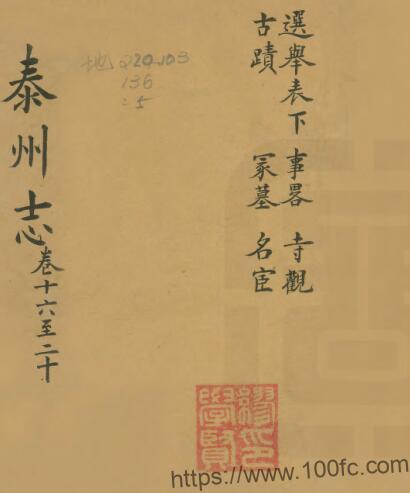 選舉表下 事畧 寺觀
古蹟 冢墓 名宦
地 220.103
136
:5
泰州志
卷十六至二十
繆印
學賢
https://www.100fc.com